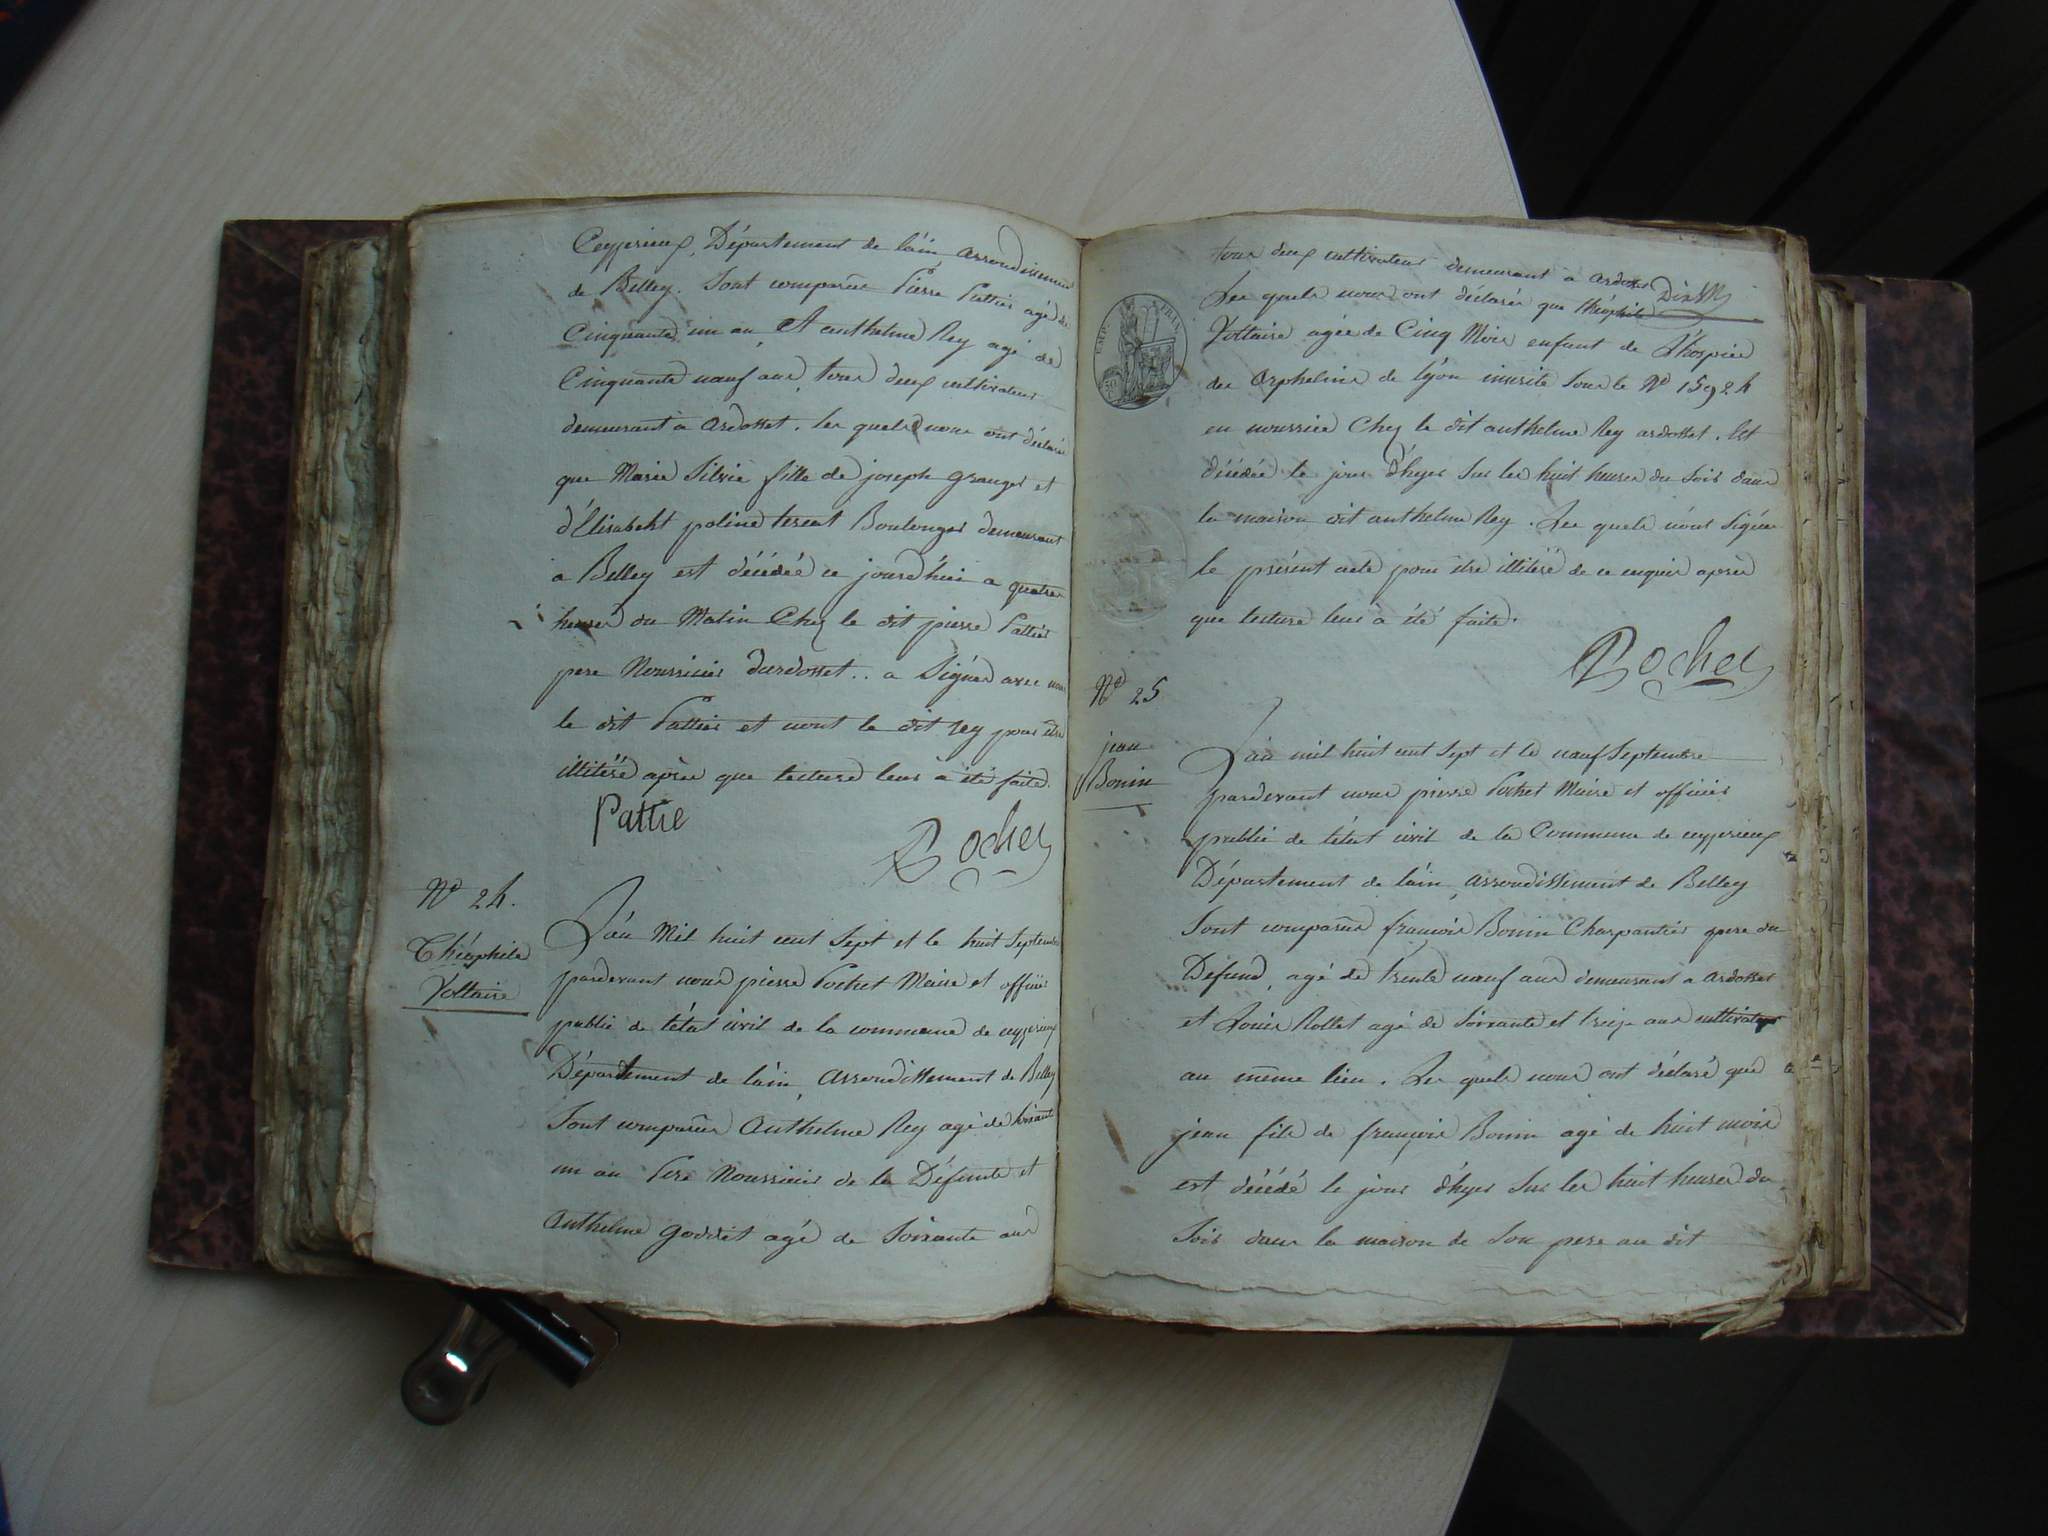 Ceyzerieux, Département de láin arrondissement
de Belley. Sont comparûs Pierre Pattiér agé de
Cinquante un an, Et anthelme Rey agé de
Cinquante nœuf ans, tous deux cultivateurs
demeurant à ardosset. les quels nous ont déclarés
que Marie Silvie fille de joseph granger et
d'Elisabeht poline terest Boulonger demeurant
a Belley est décédée ce jourd'hui a quatre
heures du Matin Chez le dit pierre Pattiér
pere Noussiciér d'ardosset.. a Signér avec nous
le dit Pattiér et nont le dit rey pour être
illitéré après que lecture leur à été faite.
Pattie
Pochet
Nº 24.
Théophile
Voltaire
L'an Mil huit cent Sept et le huit Septembre
pardevant nous pierre Pochet Maire et officiér
public de l'état civil de la commune de ceyzerieux
Département de láin, arrondissement de Belley
Sont comparûs Anthelme Rey agé de soixante
un an Pere Noussiciér de la Défunte et
Anthelme goddet agé de Soixante ans
tous deux cultivateurs demeurant à ardosset
Les quels nous ont déclarés que théophile
Voltaire agée de Cinq Mois enfant de L'hospice
des Orphelins de lyon inscrite Sous le Nº 15924
en nourrice Chez le dit anthelme Rey ardosset. Est
décédée le jour d'hyer Sur les huit heures du Soir dans
la maison dit anthelme Rey. Les quels n'ont Signés
le présent acte pour être illitéré de ce enquis après
que lecture leur à été faite.
Pochet
EMP. FRAN.
Nº 25
jean
Bonin
L'an mil huit cent Sept et le nœuf Septembre
pardevant nous pierre Pochet Maire et officiér
public de l'état civil de la Commune de ceyzerieux
Département de láin, arrondissement de Belley
Sont comparûs françois Bonin Charpantiér pere du
Defund, agé de trente nœuf ans demeurant a ardosset
et Louis Rollet agé de Soixante et treize ans cultivateur
au même lieu. Les quels nous ont déclaré que
jean fils de françois Bonin agé de huit mois
est décédé le jour d'hyer Sur les huit heures du
Soir dans la maison de Son pere au dit